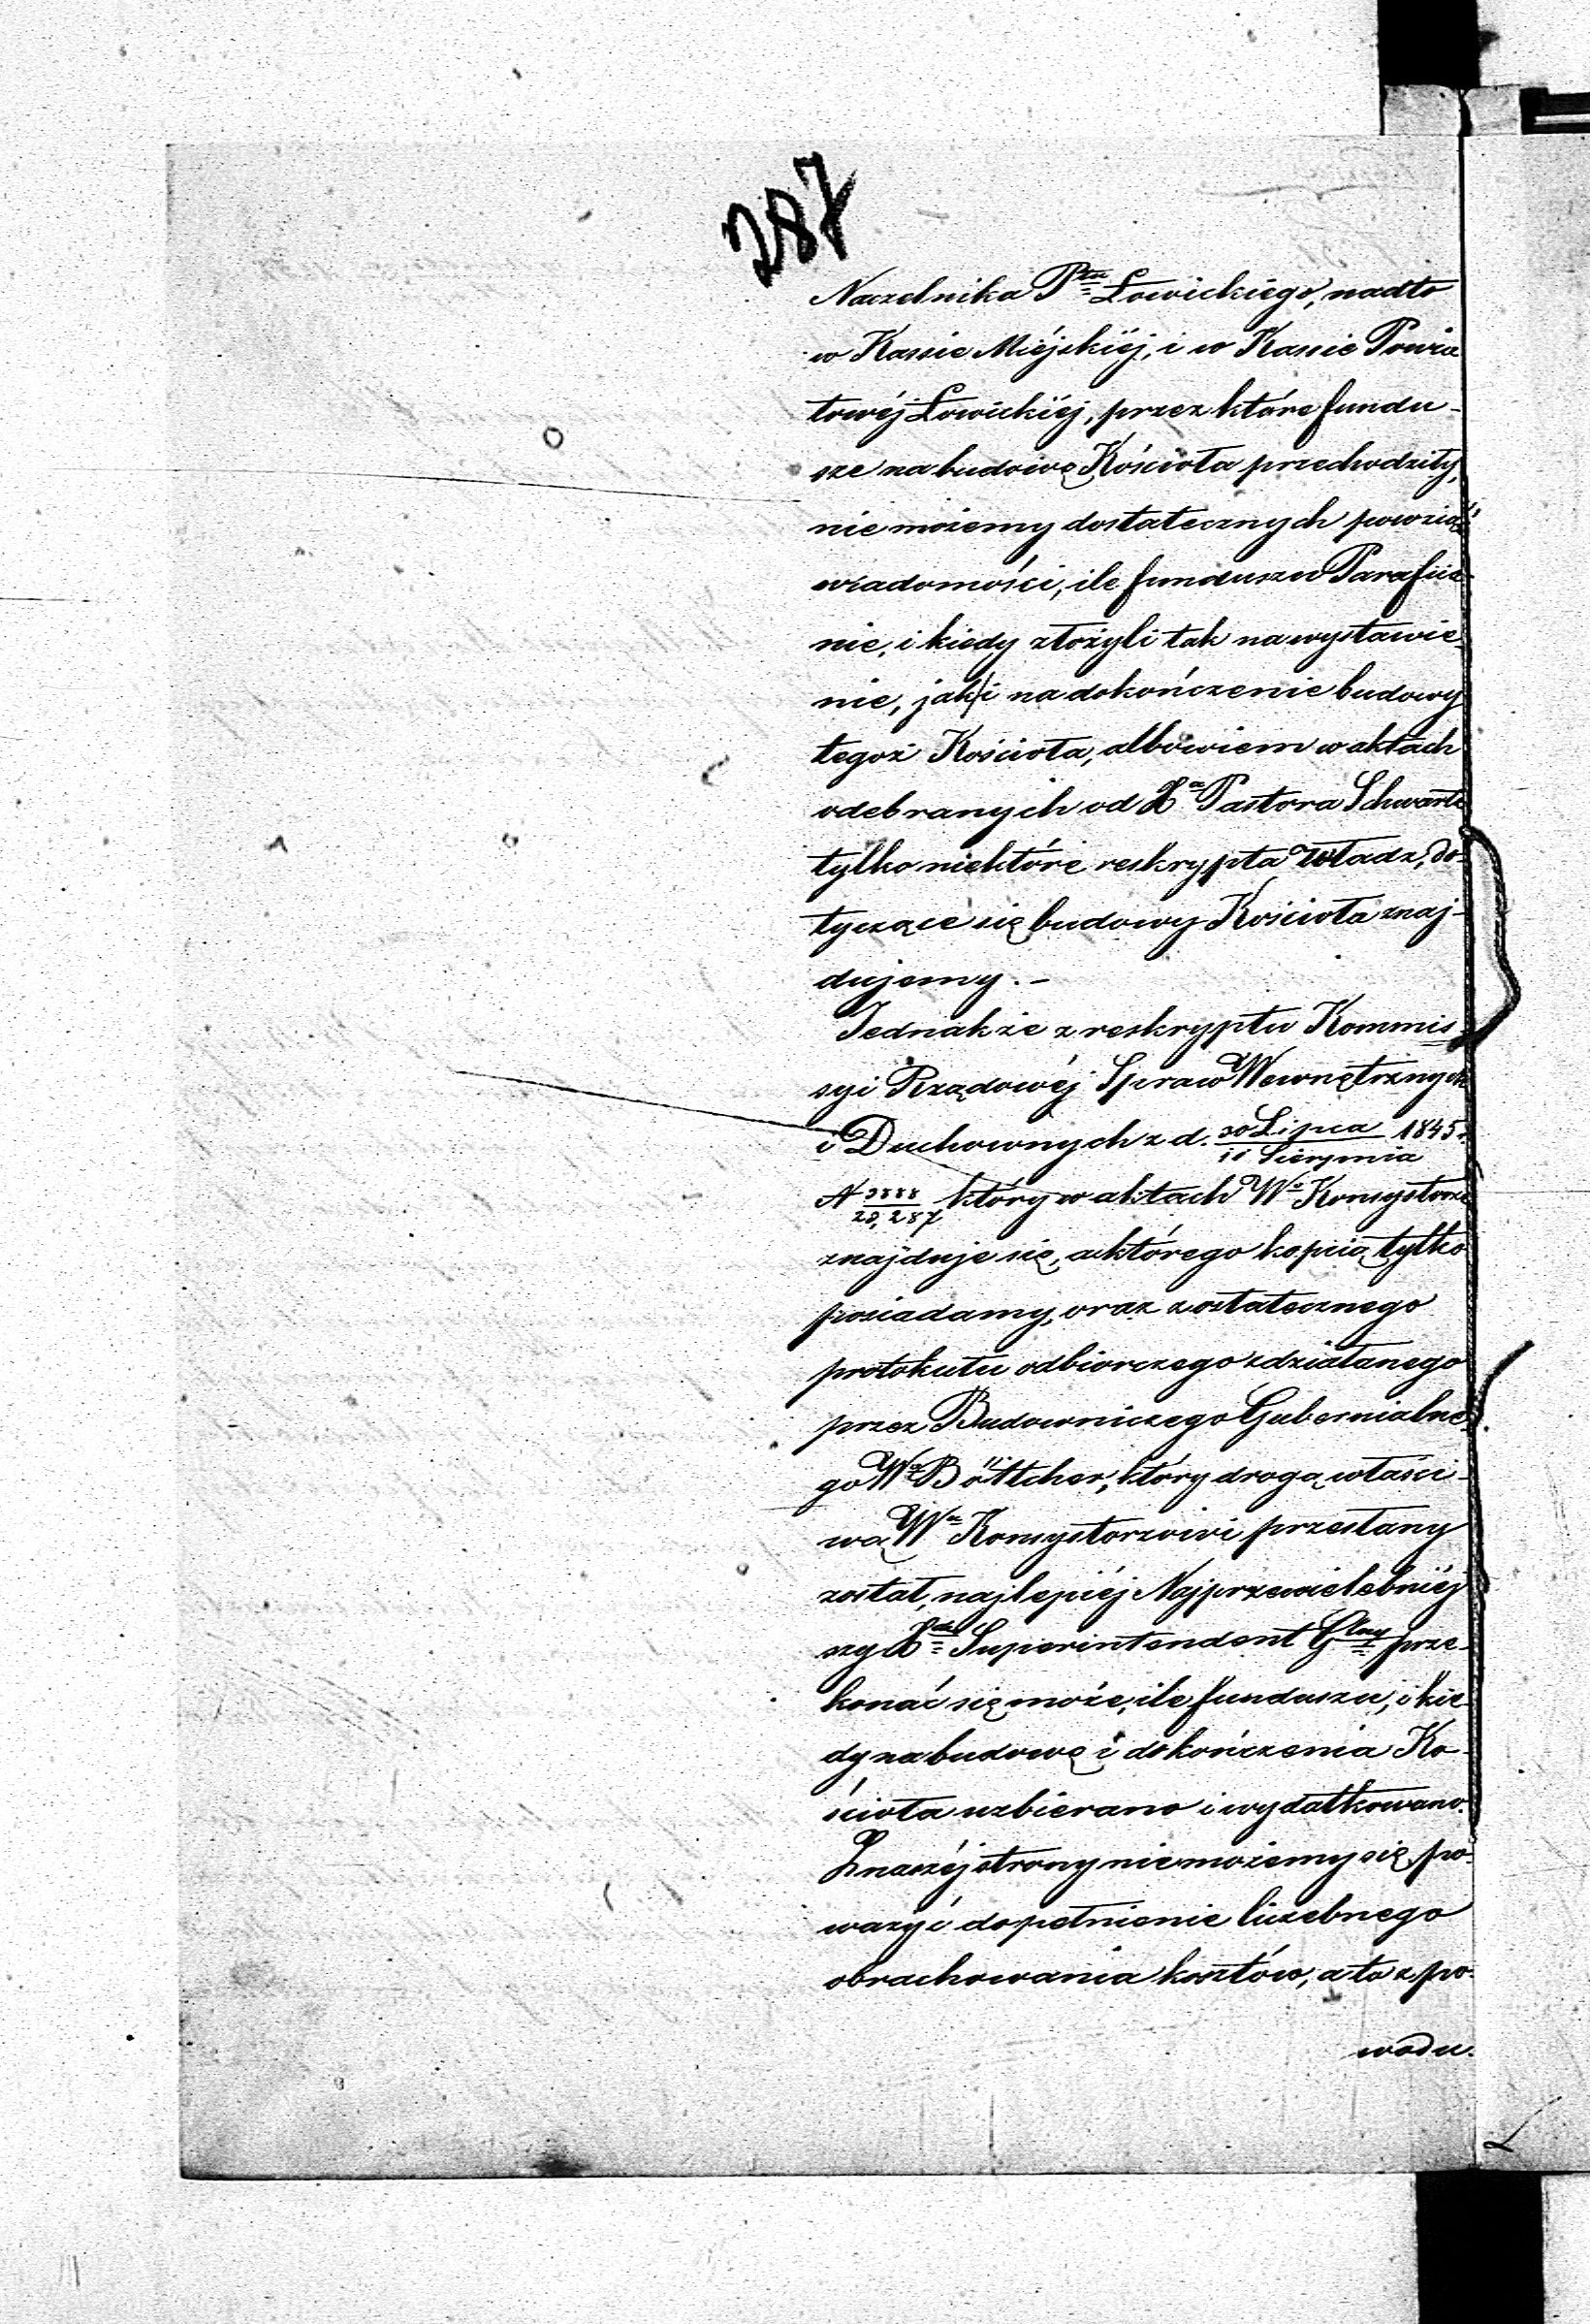 287
Naczelnika Ptu Łowickiego, nadto
w Kassie Miéjskiéj, i w Kassie Powia
towéj Łowickiéj, przez które fundu-
sze na budowę Kościoła przechodziły,
nie możemy dostatecznych powziąść
wiadomości, ile funduszu Parafia-
nie, i kiedy złożyli tak na wystawie-
nie, jak i na dokończenie budowy
tegoż Kościoła, albowiem w aktach
odebranych od Xa Pastora Schwartz
tylko niektóre reskrypta Władz, do-
tyczące się budowy Kościoła znaj-
dujemy. -
Jednakże z reskryptu Kommis
syi Rządowéj Spraw Wewnętrznych
i Duchownych z d. 30 Lipca / 11 Sierpnia 1845 r.
N 3888 / 28,287 który w aktach Wo Konsystorza
znajduje się, a którego kopią tylko
posiadamy, oraz z ostatecznego
protokułu odbiorczego zdziałanego
przez Budowniczego Gubernialne-
go Wo Böttcher, który drogą właści-
wą Wu Konsystorzowi przesłany
został, najlepiéj Najprzewielebniéj
szy Xdz Superintendent Glny prze-
konać się może, ile funduszu, i kie-
dy na budowę i dokończenia Ko-
ścioła uzbierano i wydatkowano.
Z naszéj strony nie możemy się po-
ważyć dopełnienie liczebnego
obrachowania kosztów, a to z po-
wodu.